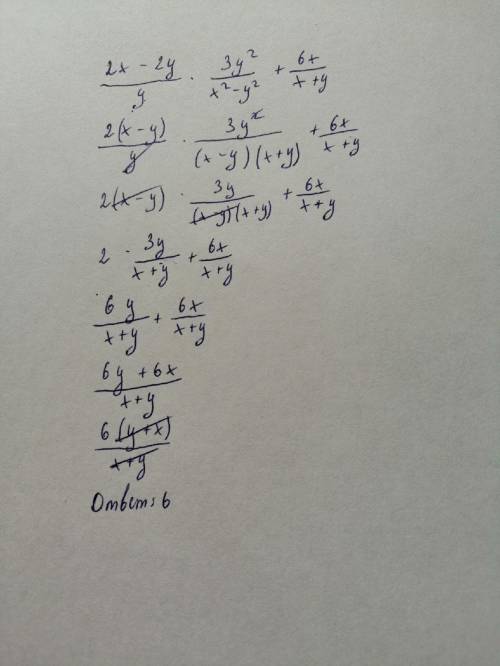 (2x - 2y)/y · 3y²/(x² - y²) + 6x/(x+y)
2(x - y)/y · 3y²/((x - y)(x+y)) + 6x/(x+y)
2(x - y) · 3y/((x-y)(x+y)) + 6x/(x+y)
2 · 3y/(x+y) + 6x/(x+y)
6y/(x+y) + 6x/(x+y)
(6y + 6x)/(x+y)
6(y+x)/(x+y)
Ответ: 6